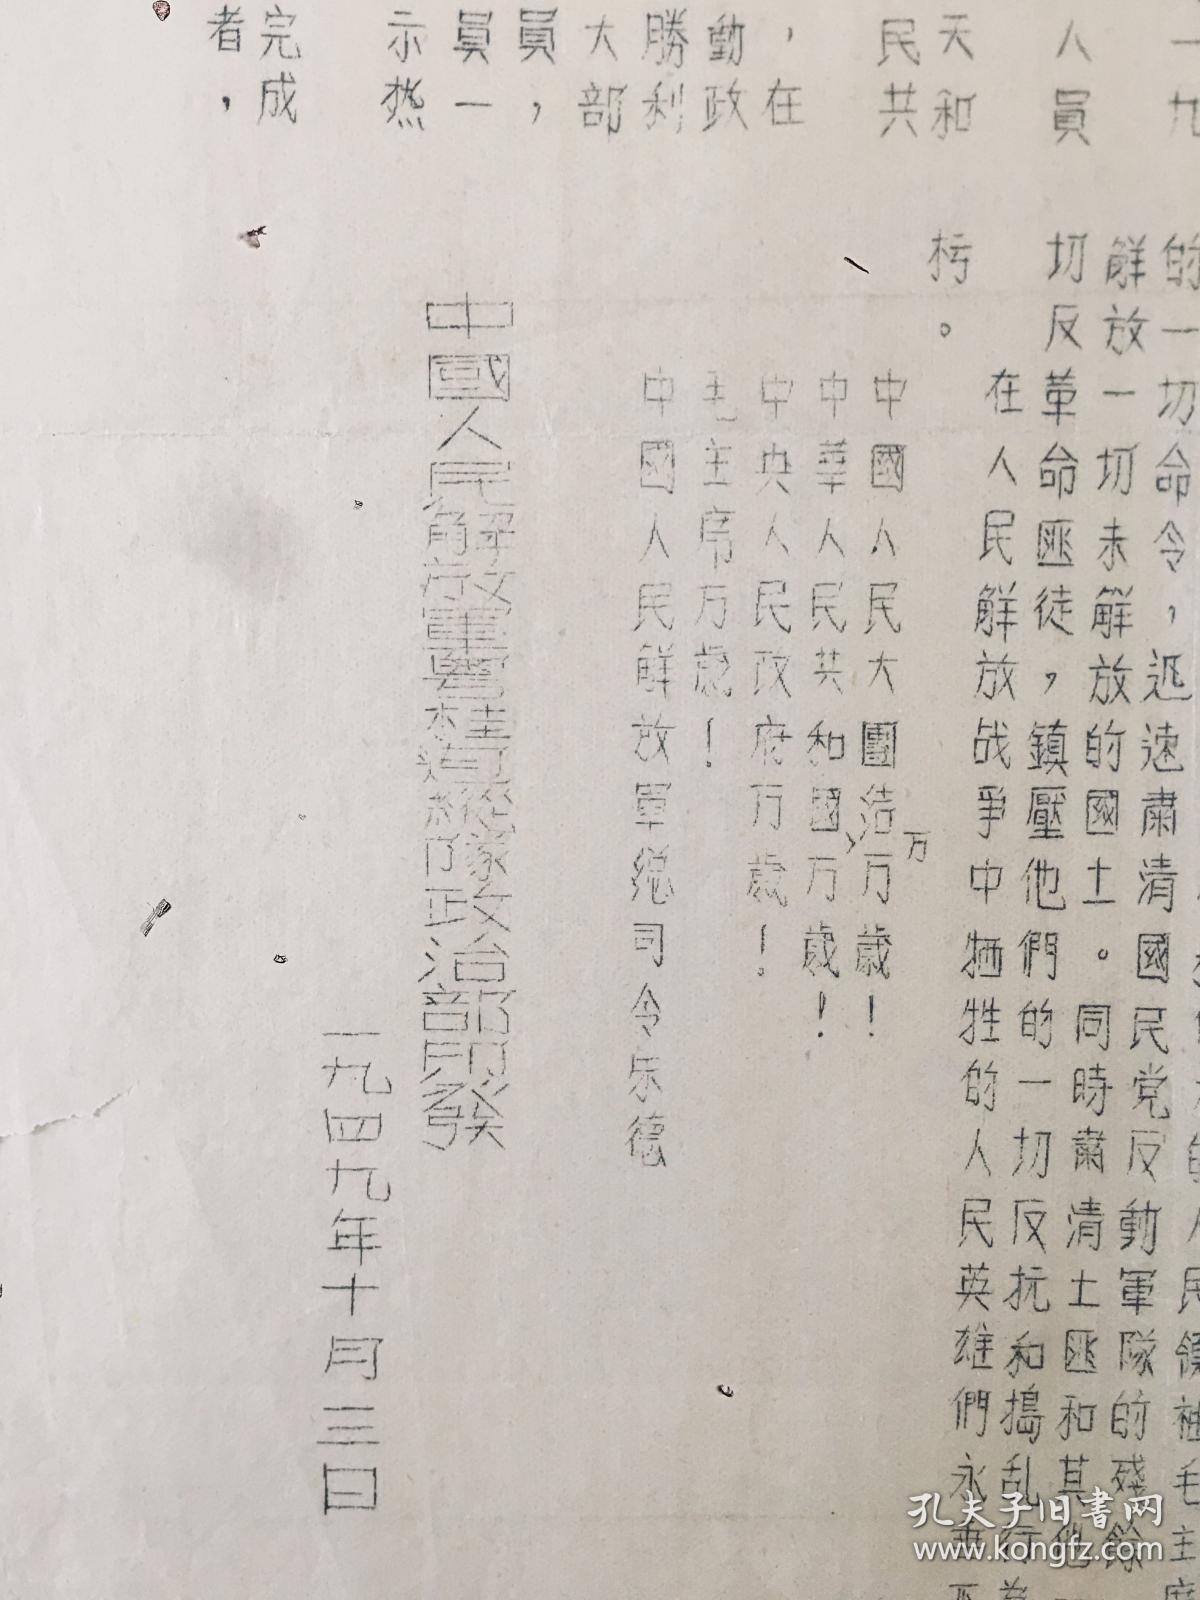 一九
人員
天和
民共
，在
動政
勝利
大部
員，
員一
示热
完成
者，
人民領袖毛主席
的一切命令，迅速肅清國民党反動軍隊的殘餘
解放一切未解放的國土。同時肅清土匪和其他
切反革命匪徒，鎮壓他們的一切反抗和搗乱行為
在人民解放战爭中牺牲的人民英雄們永垂不
朽。
中國人民大團结万歲！
万
中華人民共和國万歲！
中央人民政府万歲！。
毛主席万歲！
中國人民解放軍总司令朱德
中國人民解放軍粵桂邊縱隊政治部印發
一九四九年十月三日
孔夫子旧書网
www.kongfz.com